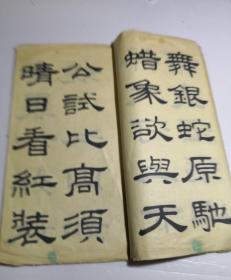 舞銀蛇原馳
蜡象欲與天
公試比高須
晴日看紅装